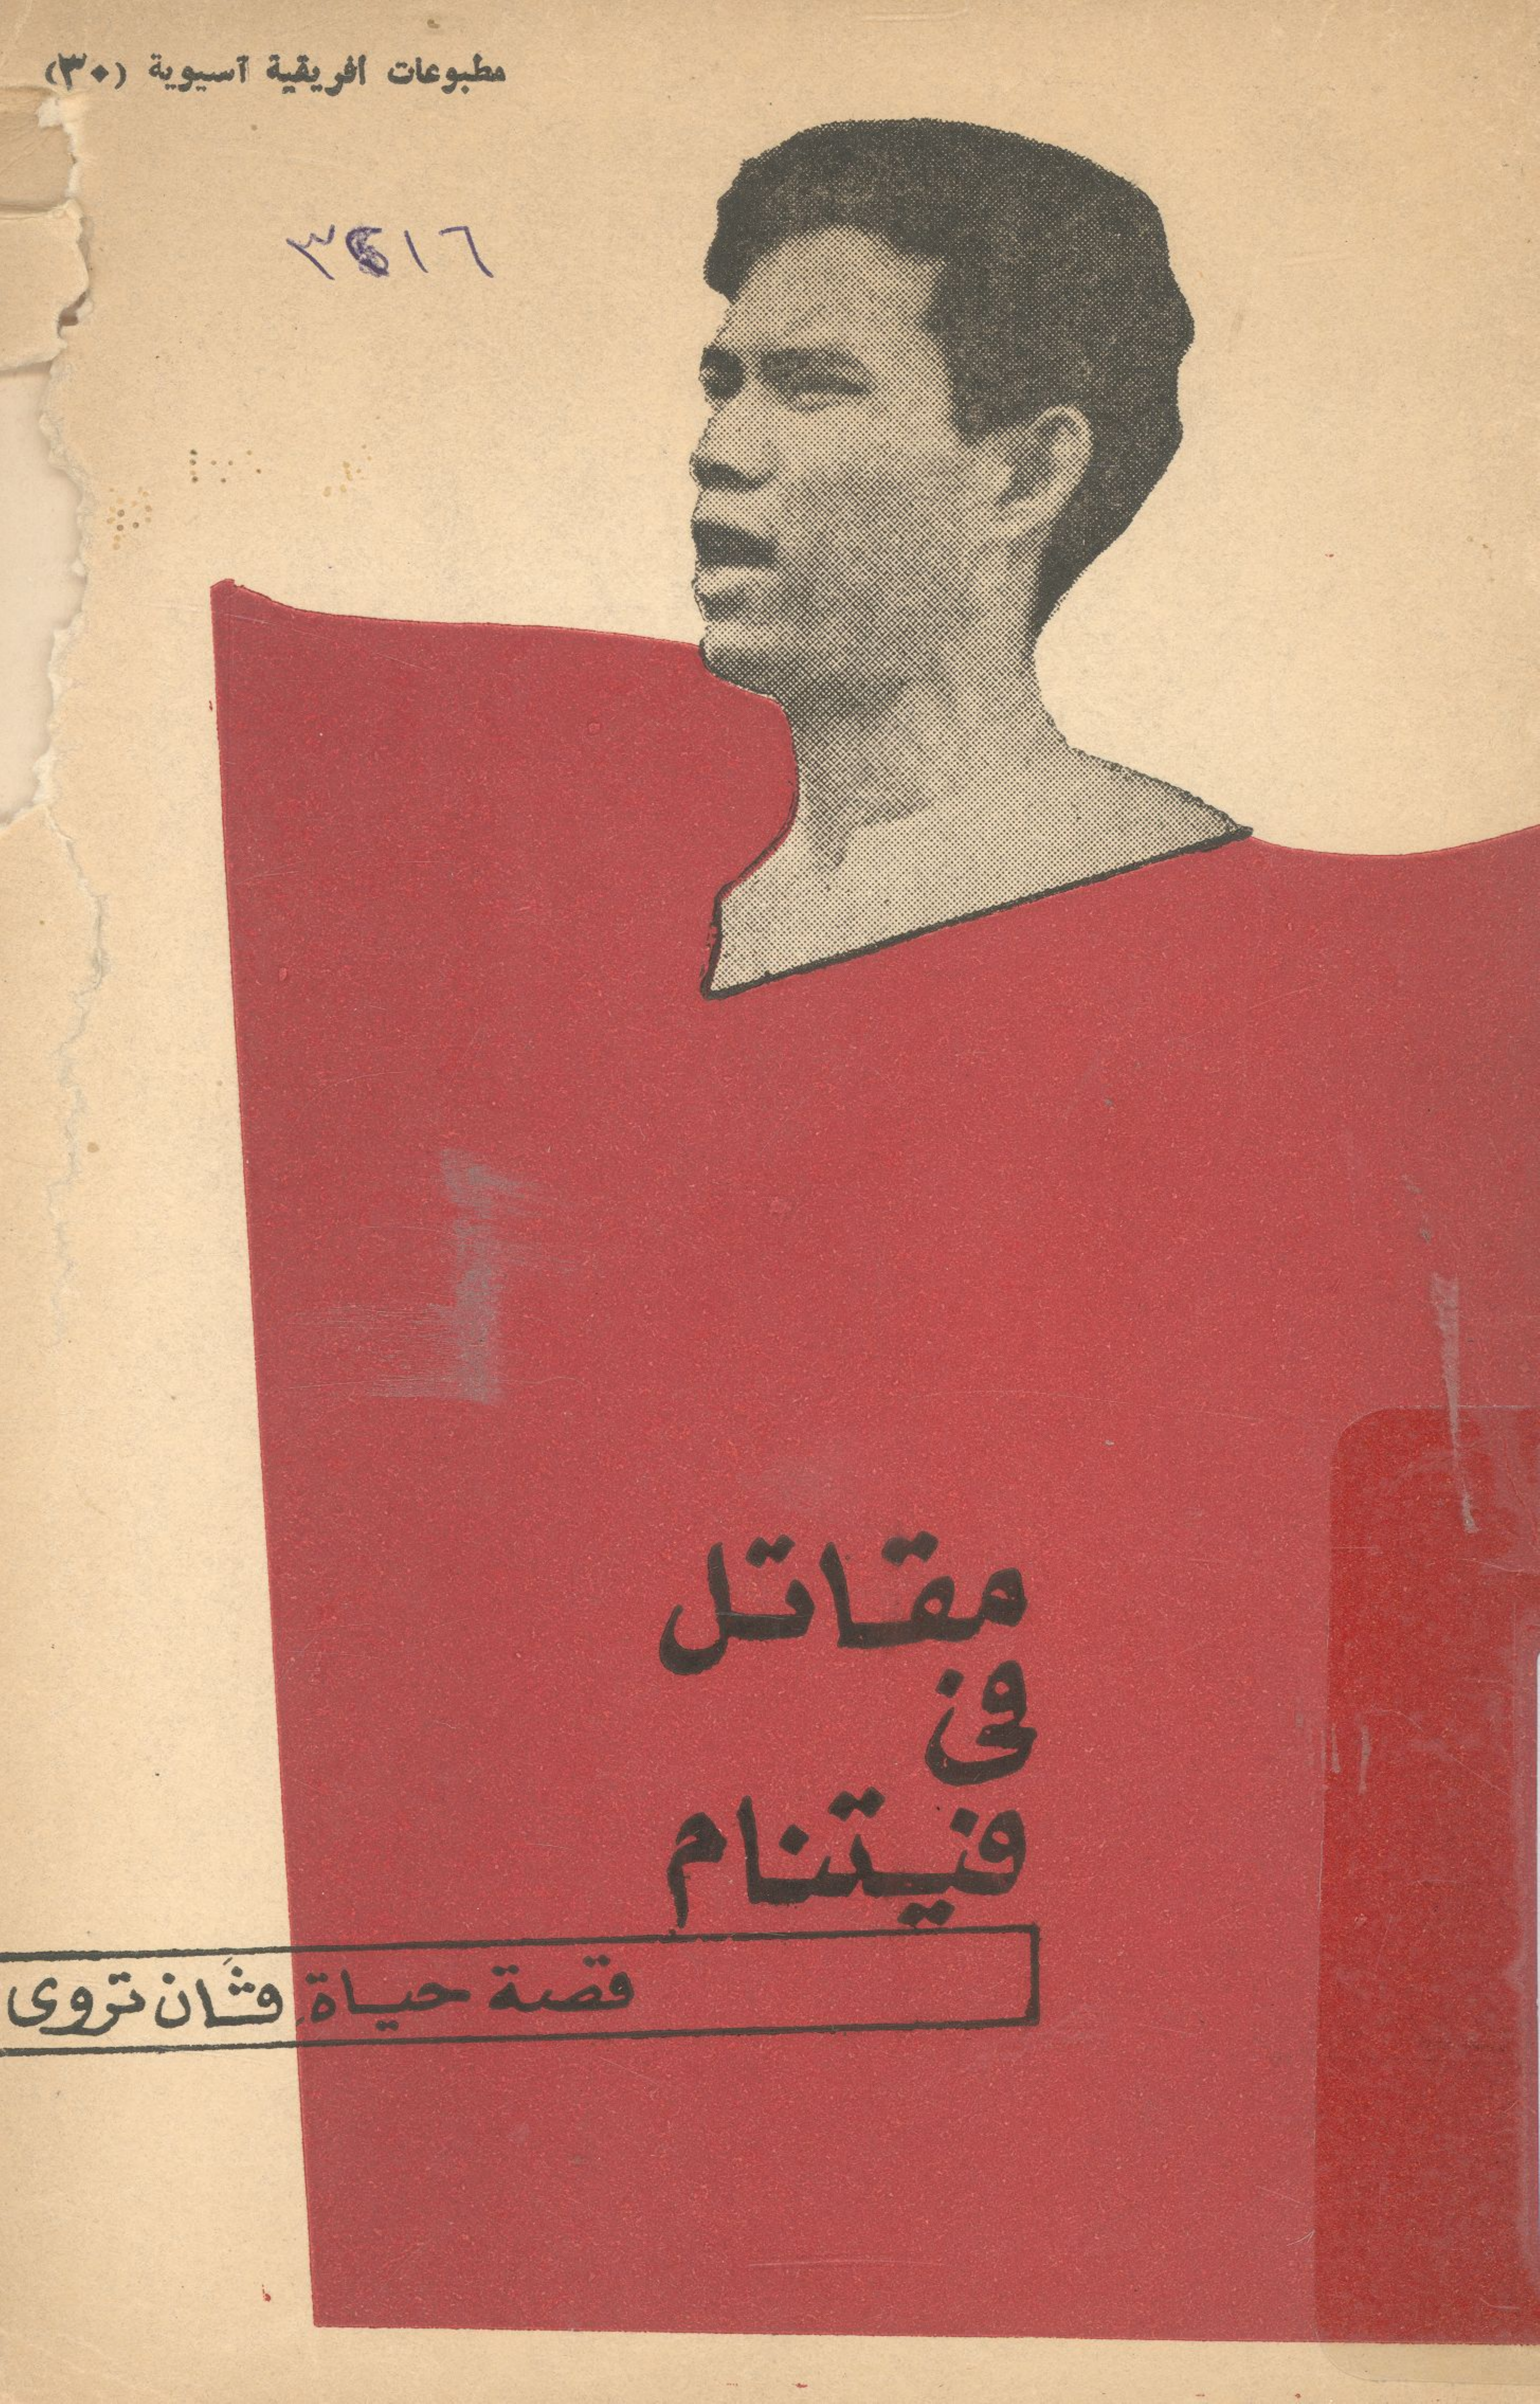 مطبوعات افريقية آسيوية (٣٠)
مقاتل
فى
فيتنام
قصة حياة ڤان تروى